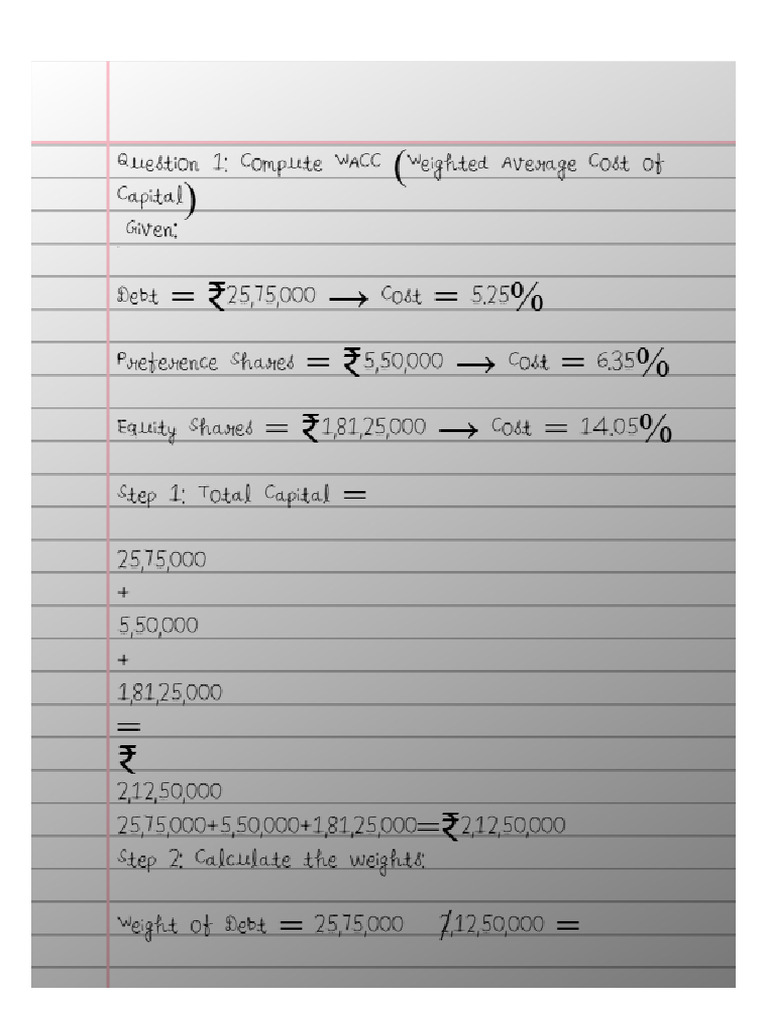 Question 1: Compute WACC (Weighted Average Cost of
Capital)
Given:
Debt = ₹25,75,000 → Cost = 5.25%
Preference Shares = ₹5,50,000 → Cost = 6.35%
Equity Shares = ₹1,81,25,000 → Cost = 14.05%
Step 1: Total Capital =
25,75,000
+
5,50,000
+
1,81,25,000
=
₹
2,12,50,000
25,75,000+5,50,000+1,81,25,000=₹2,12,50,000
Step 2: Calculate the weights:
Weight of Debt = 25,75,000 /2,12,50,000 =